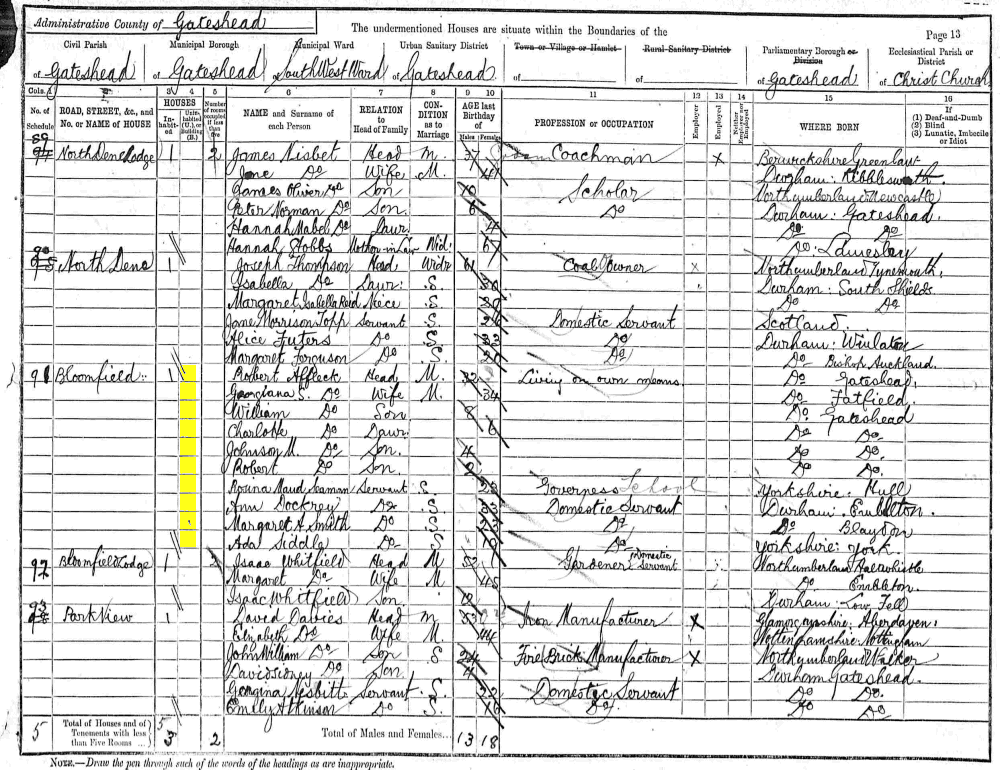 Administrative County of Gateshead
The undermentioned Houses are situate within the Boundaries of the
Page 13
Civil Parish
of Gateshead
Municipal Borough
of Gateshead
Municipal Ward
of South West Ward
Urban Sanitary District
of Gateshead
Town or Village or Hamlet
of
Rural Sanitary District
of
Parliamentary Borough or Division
of Gateshead
Ecclesiastical Parish or District
of Christ Church
Cols. 1 2 3 4 5 6 7 8 9 10 11 12 13 14 15 16
No. of Schedule
ROAD, STREET, &c., and No. or NAME of HOUSE
HOUSES
Inhabited
Uninhabited (U.) or Building (B.)
Number of rooms occupied if less than five
NAME and Surname of each Person
RELATION to Head of Family
CONDITION as to Marriage
AGE last Birthday of
Males Females
PROFESSION or OCCUPATION
Employer
Employed
Neither Employer nor Employed
WHERE BORN
If (1) Deaf-and-Dumb (2) Blind (3) Lunatic, Imbecile or Idiot
89 North Dene Lodge 1 2 James Nisbet Head M. 37 Coachman X Berwickshire Greenlaw
Jane Do Wife M. 41 Durham: Kibblesworth
James Oliver Do Son 10 Scholar Northumberland Newcastle
Peter Norman Do Son 6 Do Durham: Gateshead.
Hannah Mabel Do Daur. 4 Do Do
Hannah Stobbs Mother-in-Law Wid. 67 Do: Lamesley
90 North Dene 1 Joseph Thompson Head Widr 61 Coal Owner x Northumberland Tynemouth.
Isabella Do Daur. S. 30 Durham: South Shields
Margaret Isabella Reid Niece S. 29 Do Do
Jane Morrison Topp Servant S. 26 Domestic Servant Scotland.
Alice Futers Do S. 23 Do Durham: Winlaton
Margaret Ferguson Do S. 21 Do Do Bishop Auckland.
91 Bloomfield 1 Robert Affleck Head M. 32 Living on own means. Do Gateshead.
Georgiana S. Do Wife M. 34 Do Fatfield.
William Do Son 8 Do Gateshead
Charlotte Do Daur. 6 Do Do
Johnson M. Do Son. 4 Do Do.
Robert Do Son. 2 Do Do.
Rosina Maud Seaman Servant S. 22 Governess School Yorkshire: Hull
Ann Dockrey Do S. Domestic Servant Durham: Embleton
Margaret A. Smith Do S. 22 Do Do Blaydon
Ada Siddle Do S. Do Yorkshire: York.
92 Bloomfield Lodge 1 Isaac Whitfield Head M 52 Gardener Domestic Servant Northumberland Haltwhistle
Margaret Do Wife M 45 Do Embleton.
Isaac Whitfield Son 12 Durham: Low Fell
93 Park View 1 David Davies Head M 53 Iron Manufacturer X Glamorganshire: Aberdaven.
Elizabeth Do Wife M. 44 Nottinghamshire: Nottingham
John William Do Son S 24 Fire Brick Manufacturer X Northumberland Walker
David Sidney Do Son. 4 Durham Gateshead.
Georgina Nesbitt Servant S. 22 Domestic Servant Do Do.
Emily Atkinson Do S. Do. Do Do
5 Total of Houses and of Tenements with less than Five Rooms ... 5 3 2 Total of Males and Females... 13 18
NOTE.—Draw the pen through such of the words of the headings as are inappropriate.